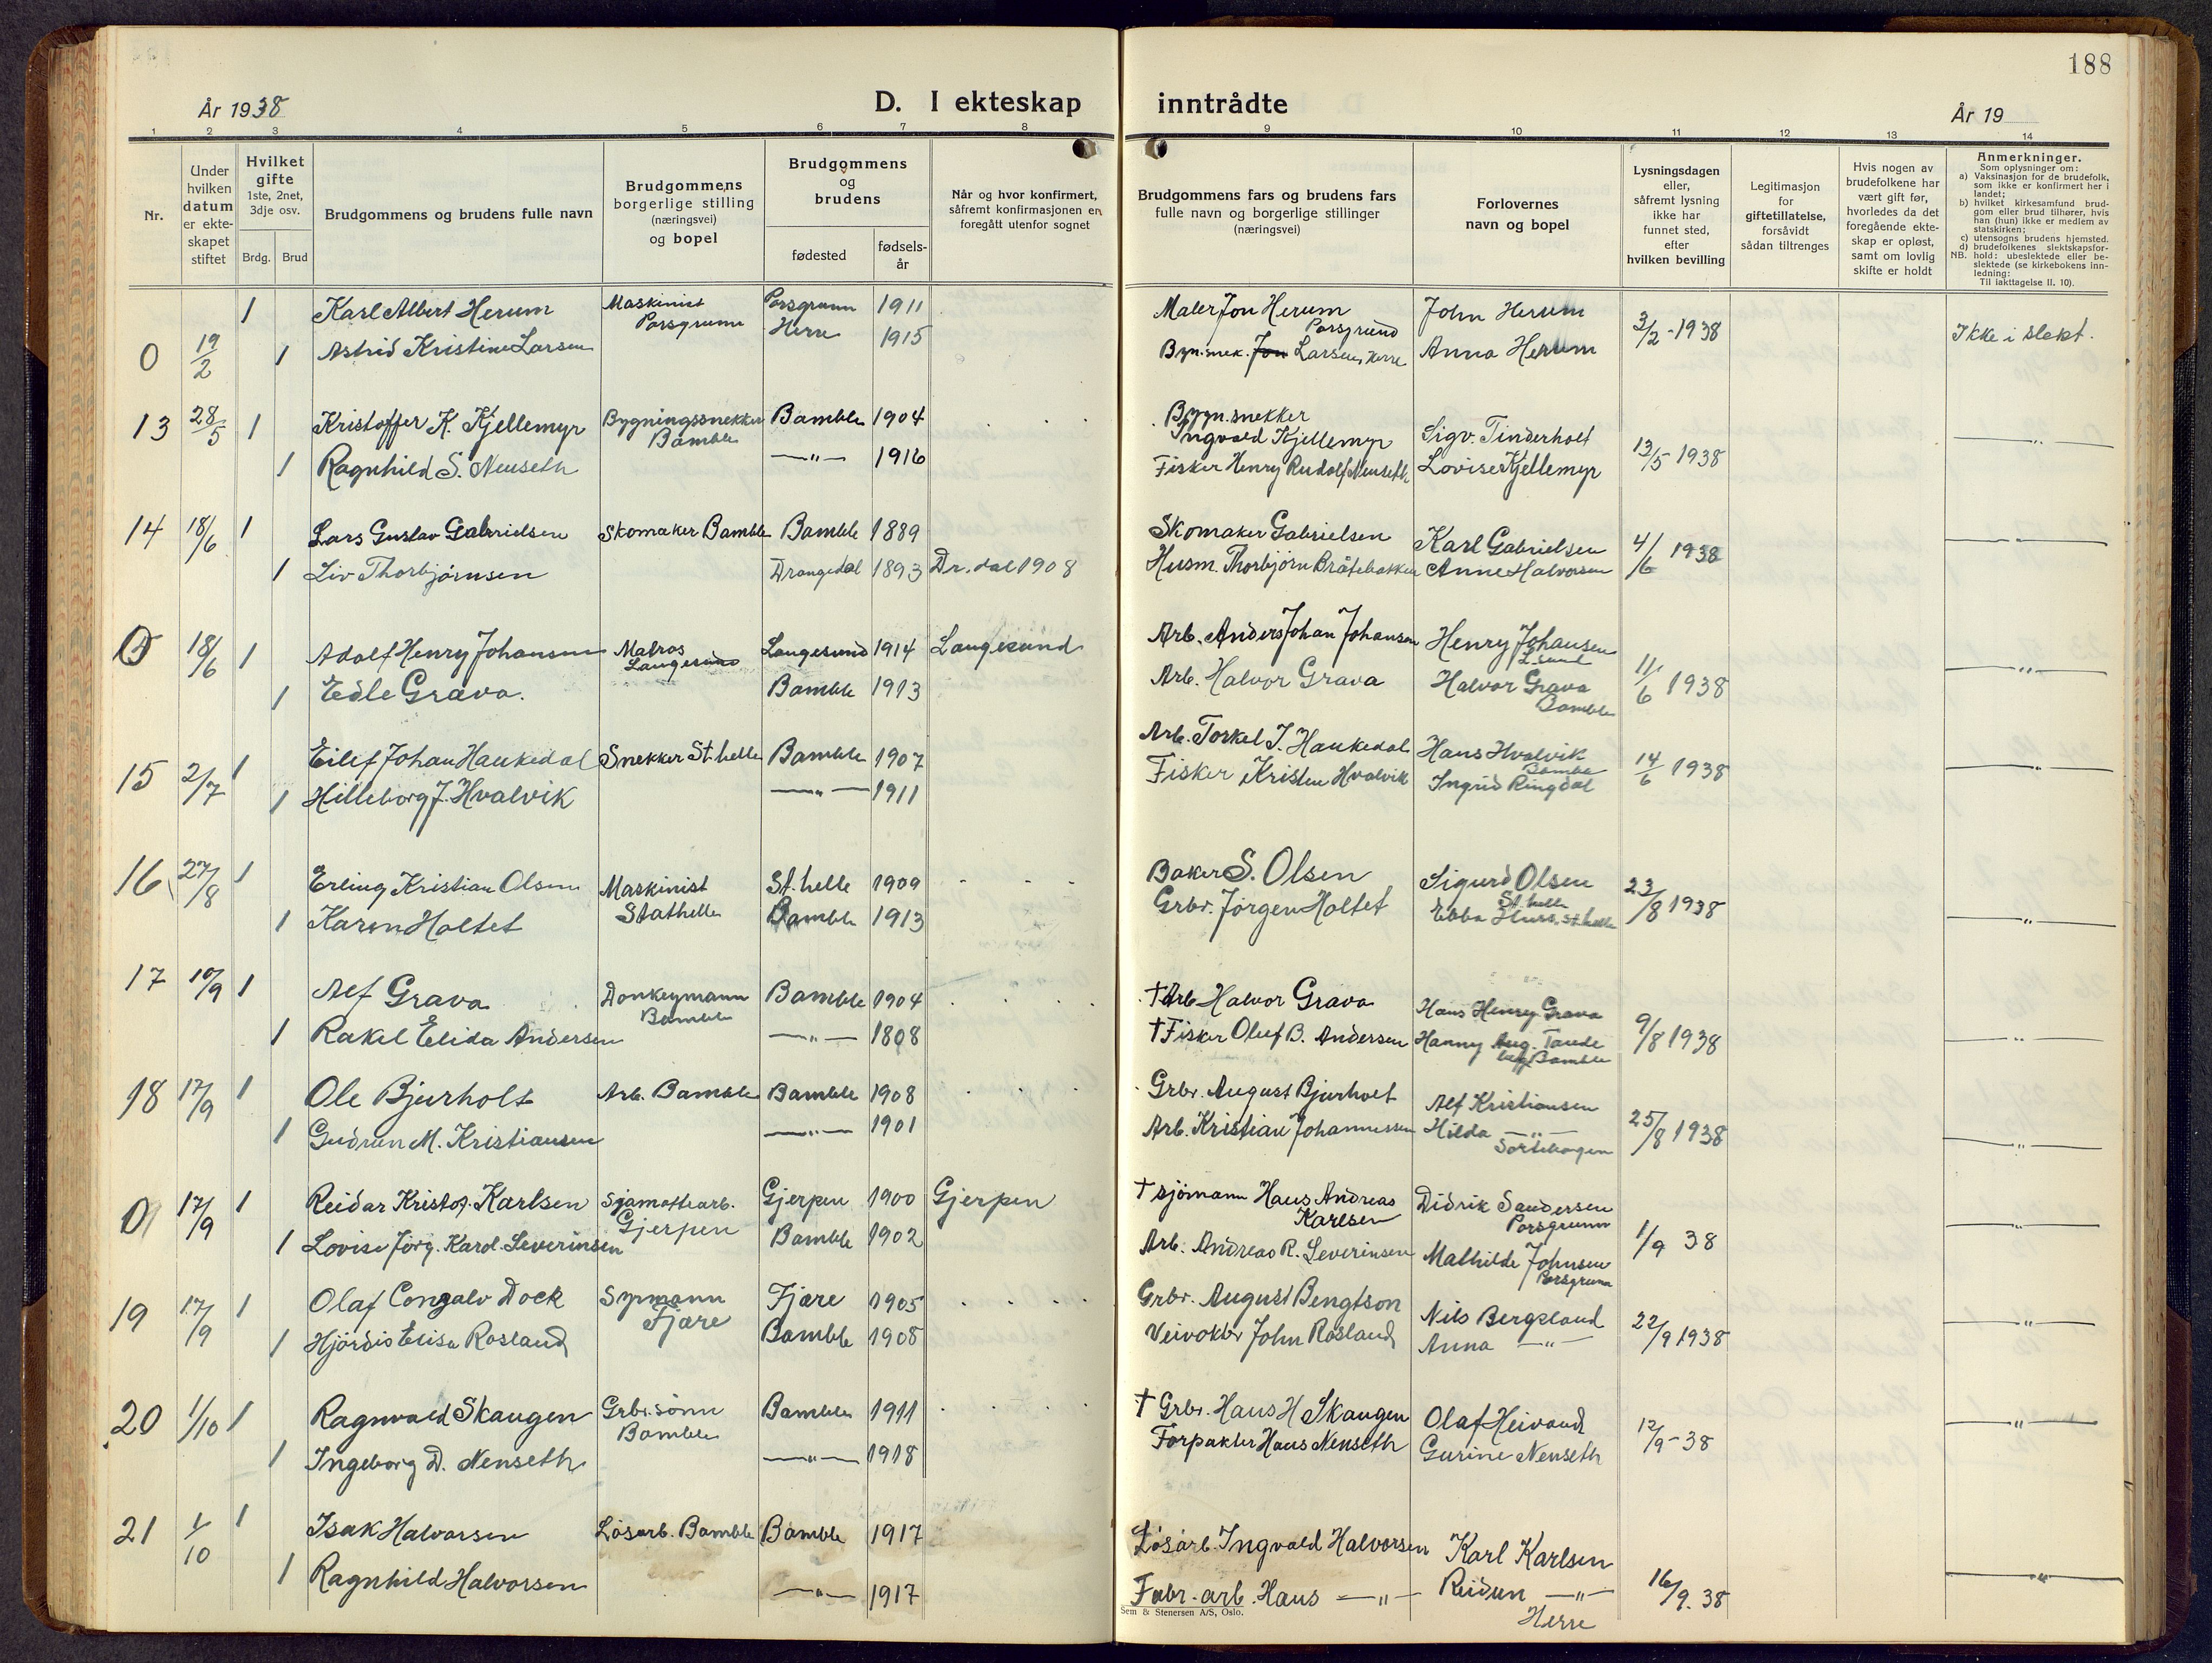 188
År 1938
D. I ekteskap inntrådte
År 19
1 2 3 4 5 6 7 8 9 10 11 12 13 14
Nr.
Under hvilken datum er ekte-skapet stiftet
Hvilket gifte 1ste, 2net, 3dje osv.
Brdg. Brud
Brudgommens og brudens fulle navn
Brudgommens borgerlige stilling (næringsvei) og bopel
Brudgommens og brudens
fødested
fødsels-år
Når og hvor konfirmert, såfremt konfirmasjonen er foregått utenfor sognet
Brudgommens fars og brudens fars fulle navn og borgerlige stillinger (næringsvei)
Forlovernes navn og bopel
Lysningsdagen eller, såfremt lysning ikke har funnet sted, efter hvilken bevilling
Legitimasjon for giftetillatelse, forsåvidt sådan tiltrenges
Hvis nogen av brudefolkene har vært gift før, hvorledes da det foregående ekte-skap er opløst, samt om lovlig skifte er holdt
Anmerkninger.
Som oplysninger om:
a) Vaksinasjon for de brudefolk, som ikke er konfirmert her i landet;
b) hvilket kirkesamfund brud-gom eller brud tilhører, hvis han (hun) ikke er medlem av statskirken;
c) utensogns brudens hjemsted.
d) brudefolkenes slektskapsfor-
NB. hold: ubeslektede eller be-slektede (se kirkebokens inn-ledning:
Til iakttagelse II. 10).
0 19/2 1 Karl Albert Herum Maskinist Porsgrunn Porsgrunn 1911 Maler Jon Herum Porsgrund John Herum 3/2-1938 Ikke i slekt.
1 Astrid Kristine Larsen Herre 1915 Bygn.snek. Jon Larsen, Herre Anna Herum
13 28/5 1 Kristoffer K. Kjellemyr Bygningssnekker Bamble Bamble 1904 Bygn.snekker Ingvald Kjellemyr Sigv. Tinderholt 13/5 1938 —"—
1 Ragnhild S. Nenseth —"— 1916 Fisker Henry Rudolf Nenseth Lovise Kjellemyr
14 18/6 1 Lars Gustav Gabrielsen Skomaker Bamble Bamble 1889 Skomaker Gabrielsen Karl Gabrielsen 4/6 1938 —"—
1 Liv Thorbjørnsen Drangedal 1893 Dr.dal 1908 Husm. Thorbjørn Bråtebakken Anne Halvorsen
0 18/6 1 Adolf Henry Johansen Matros Langesund Langesund 1914 Langesund Arb. Anders Johan Johansen Henry Johansen L.sund 11/6 1938 —"—
1 Edle Grava. Bamble 1913 Arb. Halvor Grava Halvor Grava Bamble
15 2/7 1 Eilef Johan Haukedal Snekker St.helle Bamble 1907 Arb. Torkel J. Haukedal Hans Hvalvik Bamble 14/6 1938 —"—
1 Hilleborg J. Hvalvik —"— 1911 Fisker Kristen Hvalvik Ingrid Ringdal
16 27/8 1 Erling Kristian Olsen Maskinist Stathelle St.helle 1909 Baker S. Olsen Sigurd Olsen St.helle 23/8 1938 —"—
1 Karen Holtet Bamble 1913 Grbr. Jørgen Holtet Ebba St.helle
17 10/9 1 Alf Grava Donkeymann Bamble Bamble 1904 †Arb Halvor Grava Hans Henry Grava 9/8 1938 —"—
1 Rakel Elida Andersen —"— 1808 †Fisker Oluf B. Andersen Hanny Aug. Tande Bamble
18 17/9 1 Ole Bjurholt Arb. Bamble Bamble 1908 Grbr. August Bjurholt Alf Kristiansen 25/8 1938 —"—
1 Gudrun M. Kristiansen —"— 1901 Arb. Kristian Johannessen Hilda —"—
0 17/9 1 Reidar Kristof. Karlsen Sjamottearb. Gjerpen Gjerpen 1900 Gjerpen †sjömann Hans Andreas Karlsen Didrik Sandersen Porsgrunn 1/9 38 —"—
1 Lovise Jörg. Karol. Severinsen Bamble 1902 Arb. Andreas R. Severinsen Mathilde Johnsen Porsgrunn
19 17/9 1 Olaf Congalv Dock Sypmann Fjære Fjære 1905 Grbr. August Bengtson Nils Bergsland 22/9 1938 —"—
1 Hjördis Elise Rosland Bamble 1908 Veivokter John Rosland Anna —"—
20 1/10 1 Ragnvald Skaugen Grbr.sønn Bamble Bamble 1911 † Grbr. Hans H Skaugen Olaf Heivand 12/9-38 —"—
1 Ingeborg D. Nenseth —"— 1918 Forpakter Hans Nenseth Gurine Nenseth
21 1/10 1 Isak Halvorsen Løsarb. Bamble Bamble 1917 Løsarb. Ingvald Halvorsen Karl Karlsen 16/9.38 —"—
1 Ragnhild Halvorsen —"— 1917 Fabr-arb. Hans —"— Reidun —"— Herre
Sem & Stenersen A/S, Oslo.